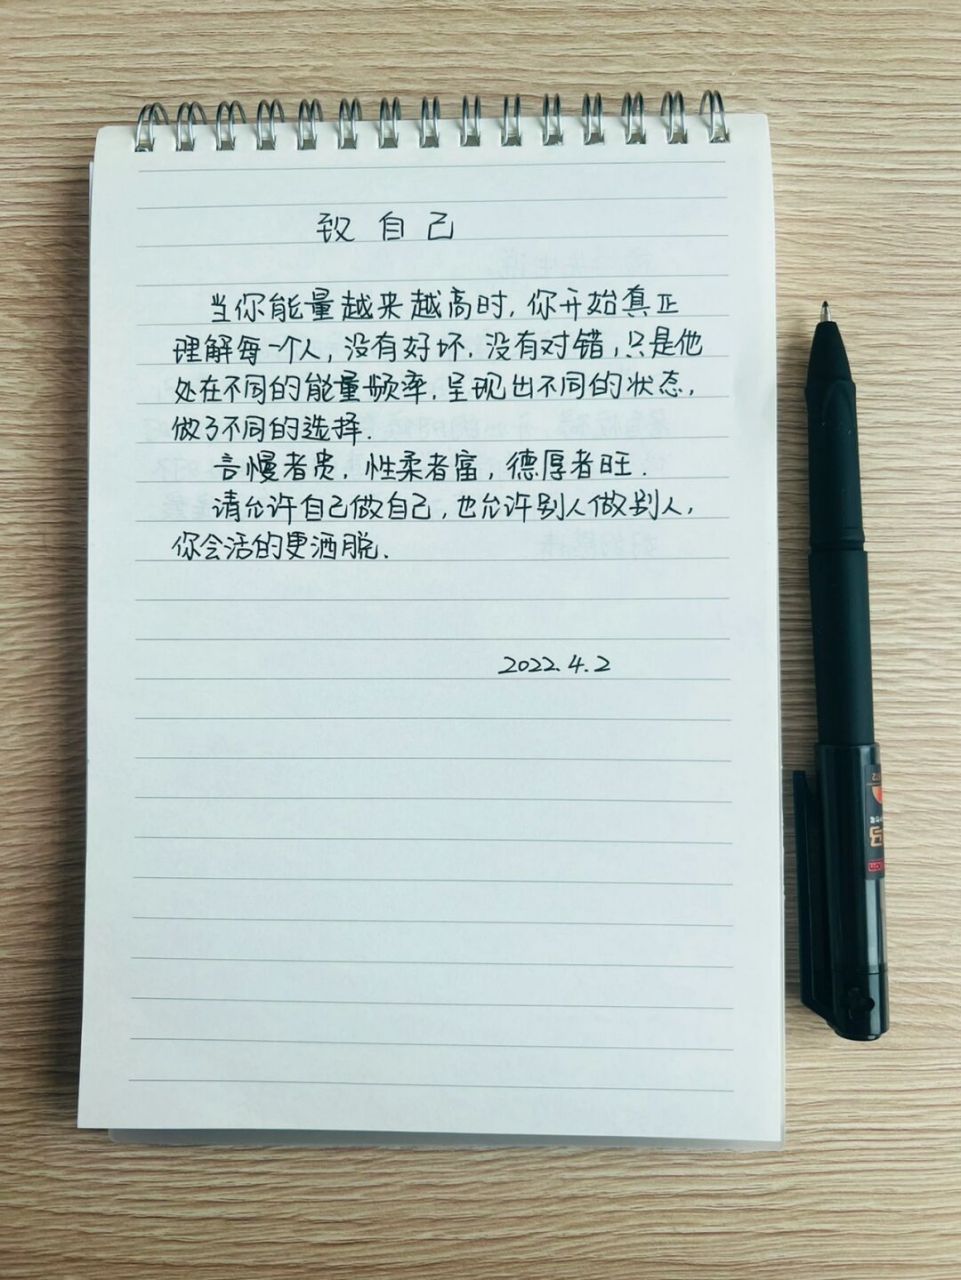 致自己
当你能量越来越高时，你开始真正
理解每一个人，没有好坏．没有对错，只是他
处在不同的能量频率．呈现出不同的状态，
做了不同的选择．
言慢者贵，性柔者富，德厚者旺．
请允许自己做自己，也允许别人做别人，
你会活的更洒脱．
2022.4.2